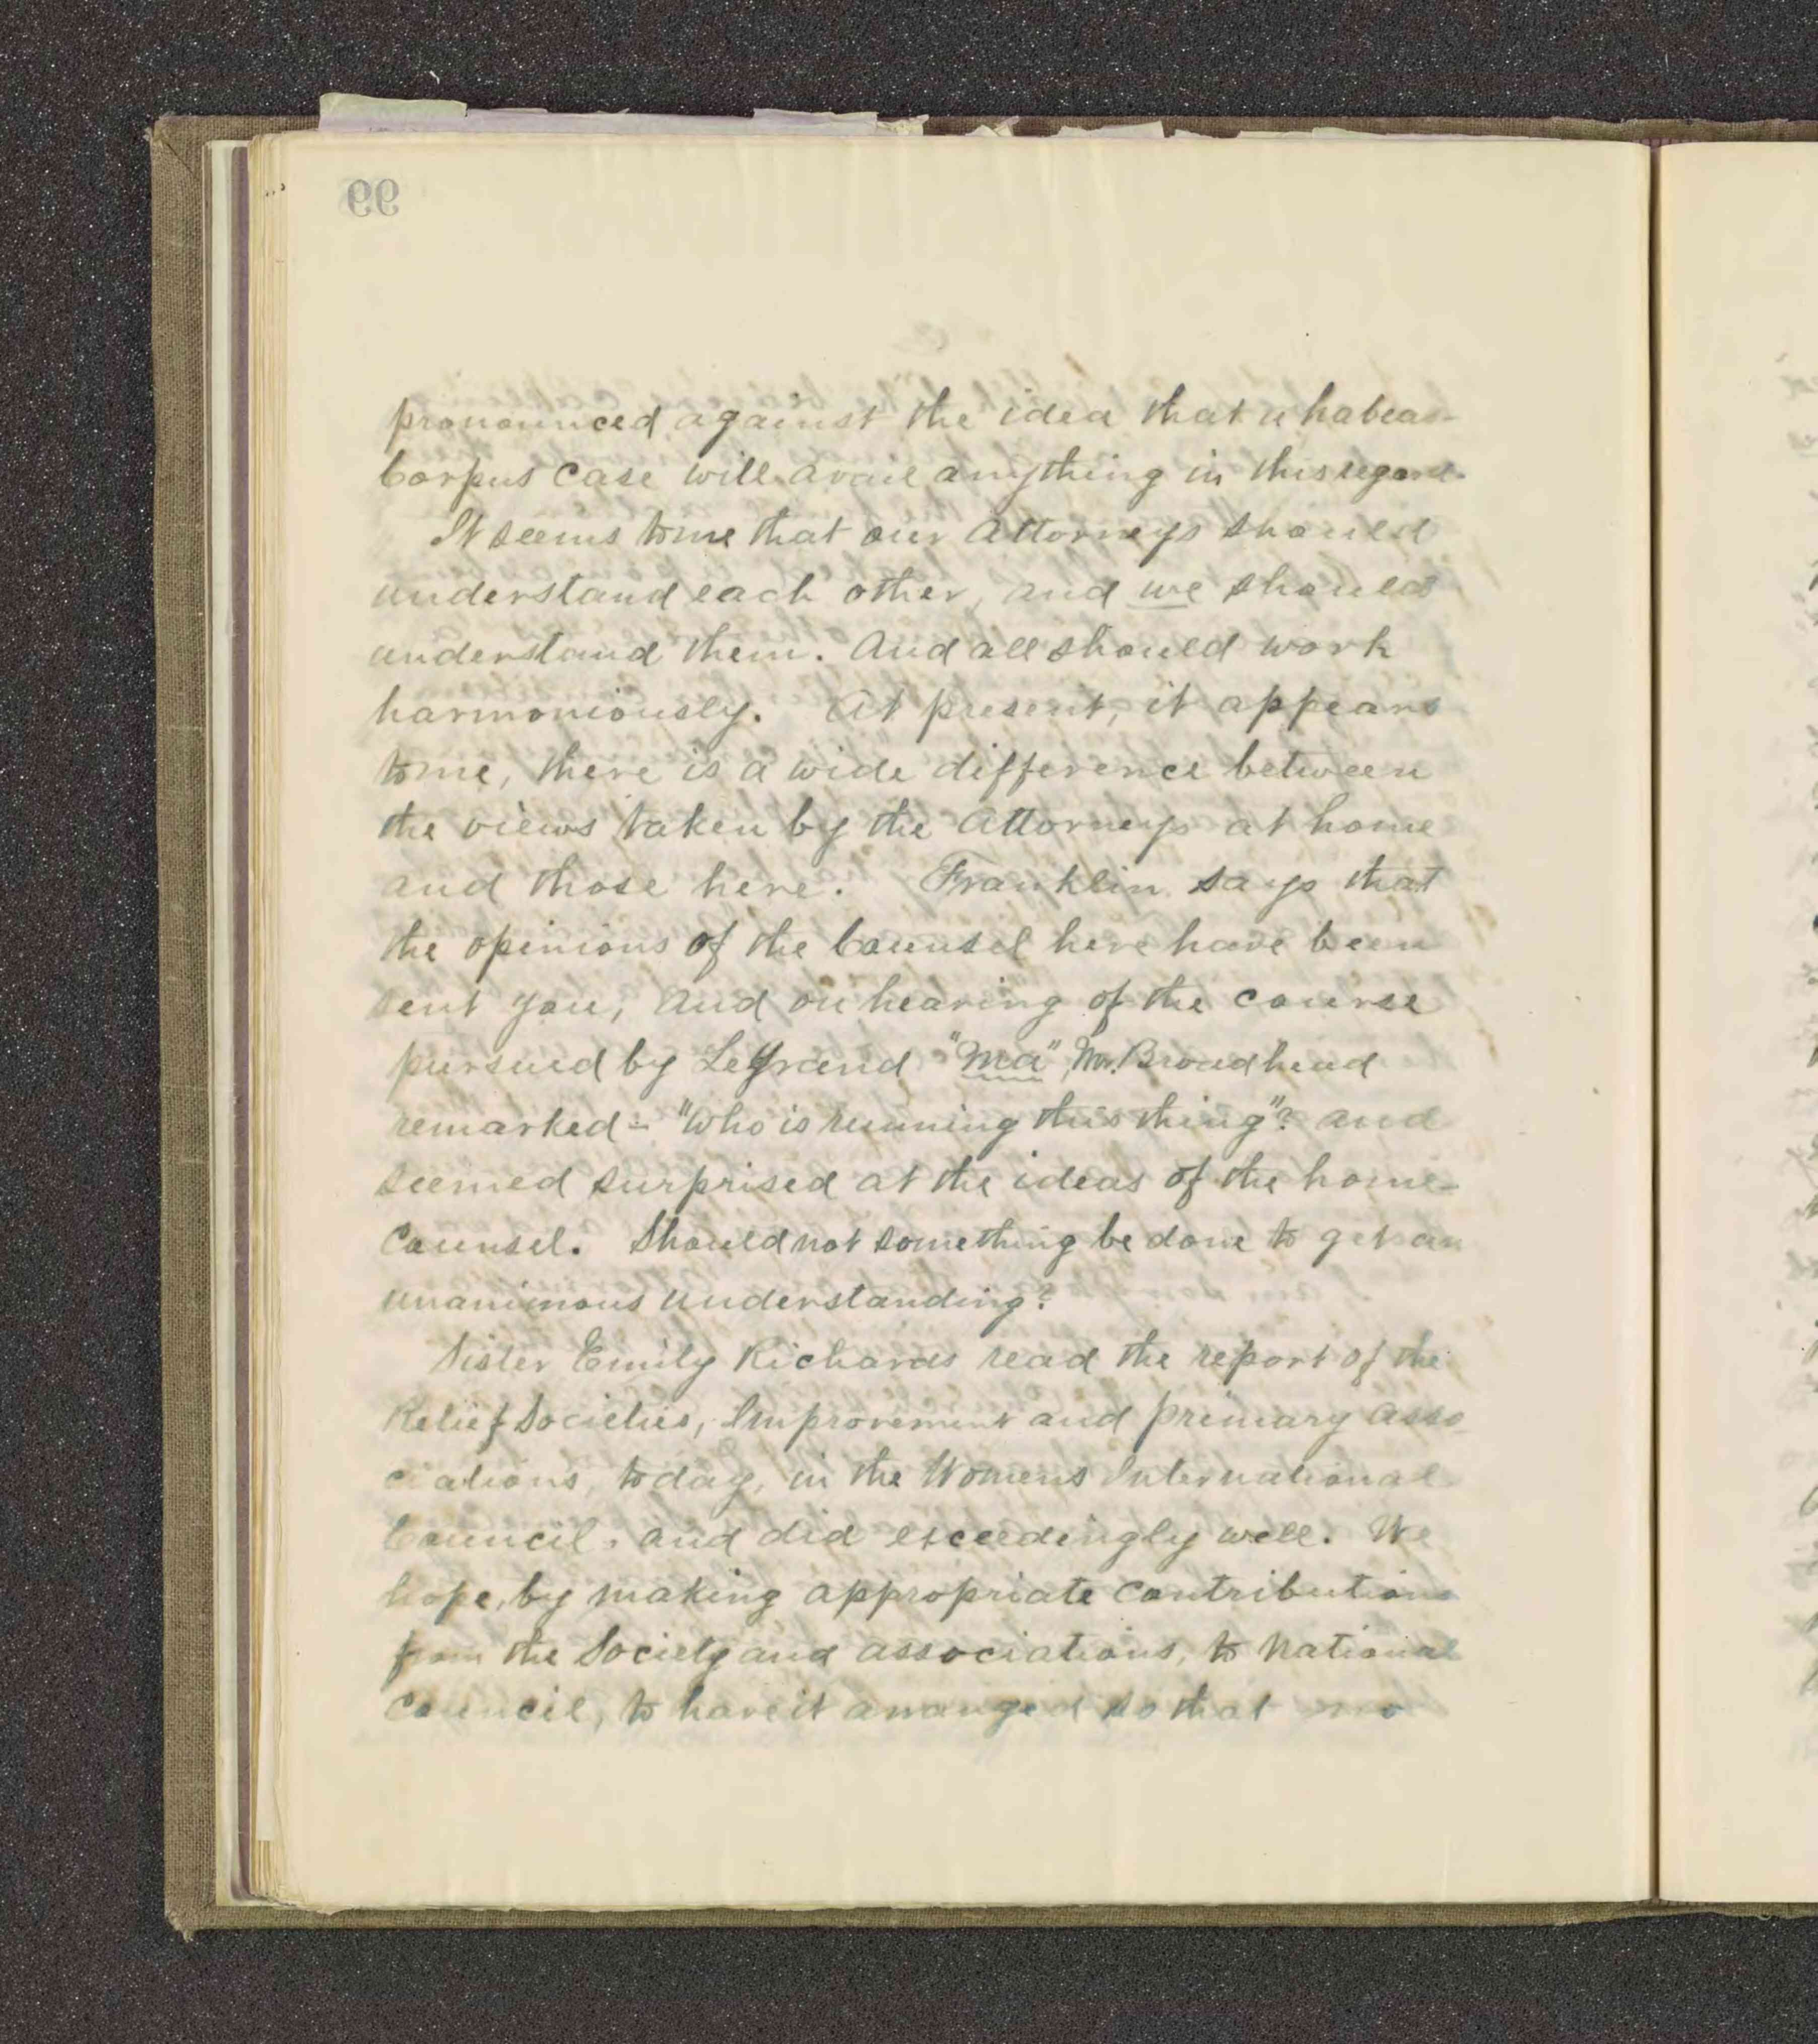 99
pronounced against the idea that a habeas-
Corpus Case will avail anything in this regard.
It seems to me that our Attorneys should
understand each other, and we should
understand them. And all should work
harmoniously. At present, it appears
to me, there is a wide difference between
the views taken by the Attorneys at home
and those here. Franklin says that
the opinions of the Counsel here have been
sent you, and on hearing of the course
pursued by LeGrand "Ma", Mr. Broadhead
remarked - "Who is running this thing"? and
seemed surprised at the ideas of the home-
Counsel. Should not something be done to get an
unanimous understanding?
Sister Emily Richards read the report of the
Relief Societies, Improvement and primary Asso-
ciations, today, in the Womens International
Council, and did exceedingly well. We
hope, by making appropriate contributions
from the Society and associations, to National
Council, to have it arranged so that